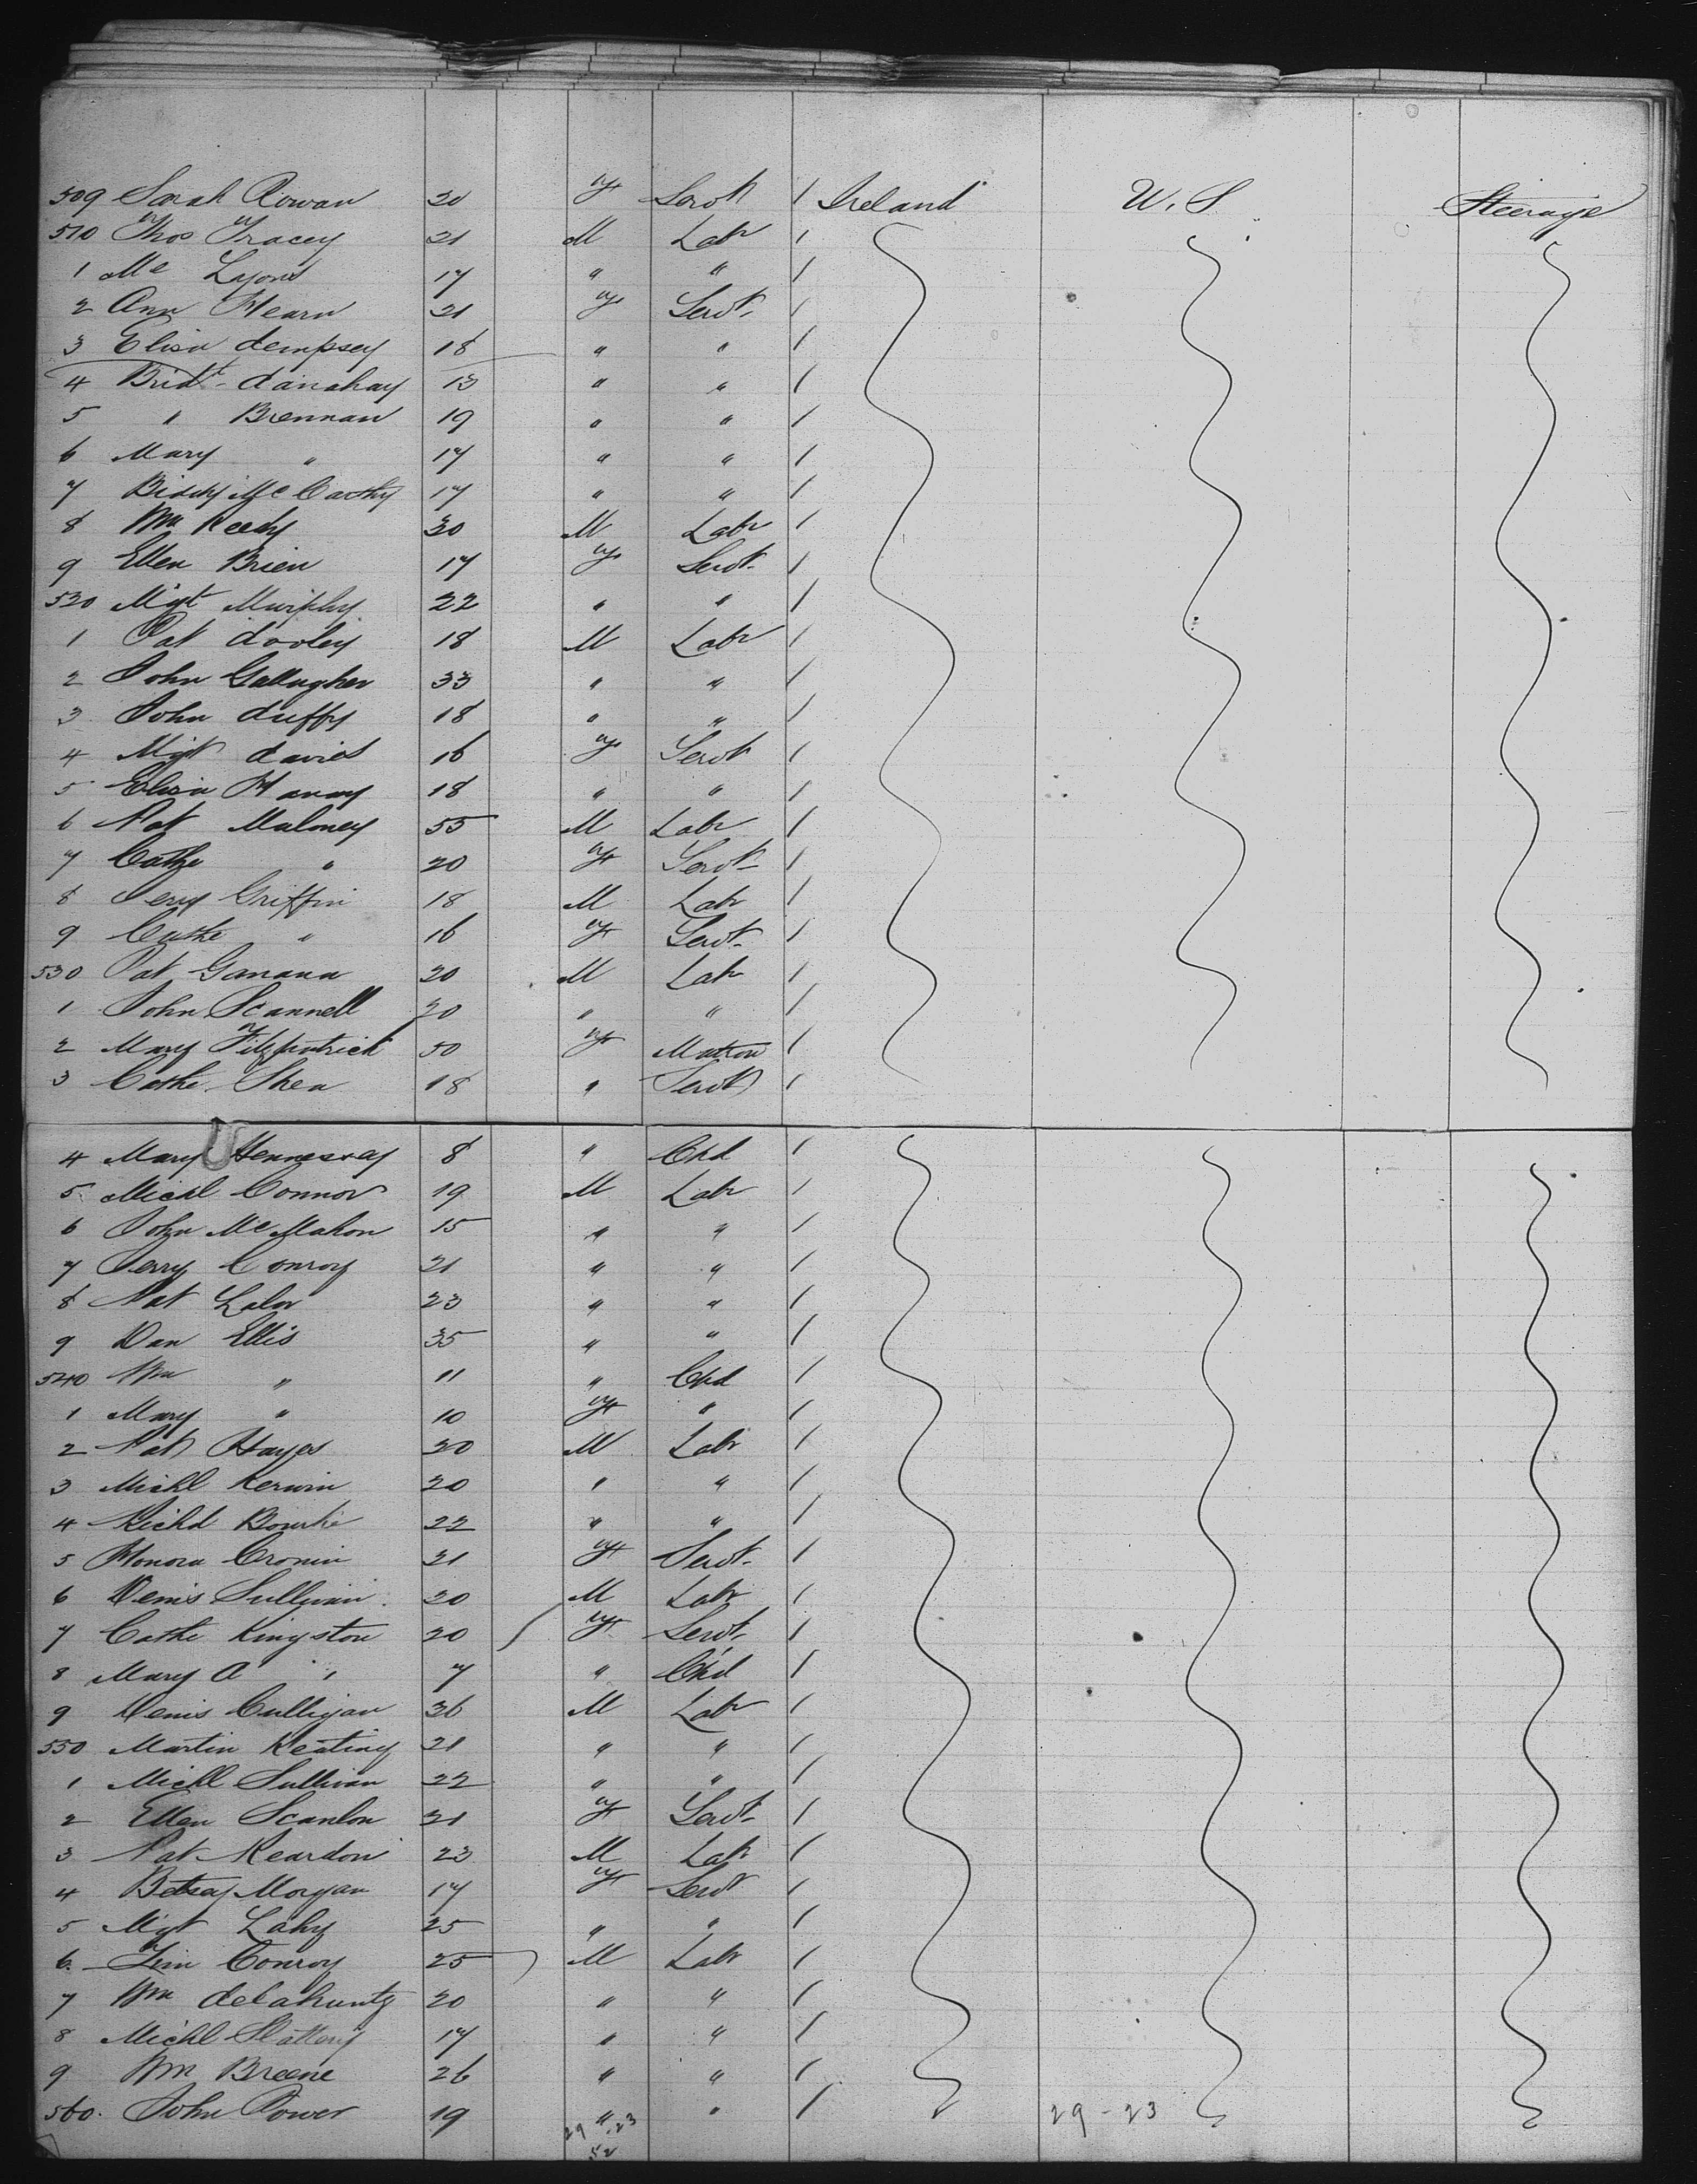 509 Sarah Rowan 20 f Servt / Ireland U.S. Steerage
510 Thos Tracey 21 M Labr /
1 Mc Lyons 17 " " /
2 Ann Hearn 21 f Servt /
3 Eliza dempsey 18 " " /
4 Bridt danahay 13 " " /
5 " Brennan 19 " " /
6 Mary " 17 " " /
7 Biddy McCarthy 17 " " /
8 Wm Reedy 30 M Labr /
9 Ellen Brien 17 f Servt /
520 Mgt Murphy 22 " " /
1 Pat dooley 18 M Labr /
2 John Gallagher 33 " " /
3 John duffy 18 " " /
4 Mgt davis 16 f Servt /
5 Eliza Hanay 18 " " /
6 Pat Maloney 55 M Labr /
7 Cathe " 20 f Servt /
8 Jerry Griffin 18 M Labr /
9 Cathe " 16 f Servt /
530 Pat 20 M Labr /
1 John Scannell 20 " " /
2 Mary Fitzpatrick 50 f Matron /
3 Cathe Shea 18 " Servt /
4 Mary Hennessay 8 " Chd /
5 Michl Connor 19 M Labr /
6 John McMahon 15 " " /
7 Jerry Conroy 21 " " /
8 Pat Lalor 23 " " /
9 Dan Ellis 35 " " /
540 Wm " 11 " Chd /
1 Mary " 10 f " /
2 Pat Hayes 20 M Labr /
3 Michl Kerwin 20 " " /
4 Richd Bourke 22 " " /
5 Honora Cronin 21 f Servt /
6 Denis Sullivan 20 M Labr /
7 Cathe Kingston 20 f Servt /
8 Mary A " 7 " Chd /
9 Denis Culligan 36 M Labr /
550 Martin Keating 21 " " /
1 Michl Sullivan 22 " " /
2 Ellen Scanlon 21 f Servt /
3 Pat Reardon 23 M Labr /
4 Betsey Morgan 17 f Servt /
5 Mgt Lahy 25 " " /
6 Tim Conroy 25 M Labr /
7 Wm delahunty 20 " " /
8 Michl Slattery 17 " " /
9 Wm Breene 26 " " /
560 John Power 19 " " / 29-23
29 - 23
52